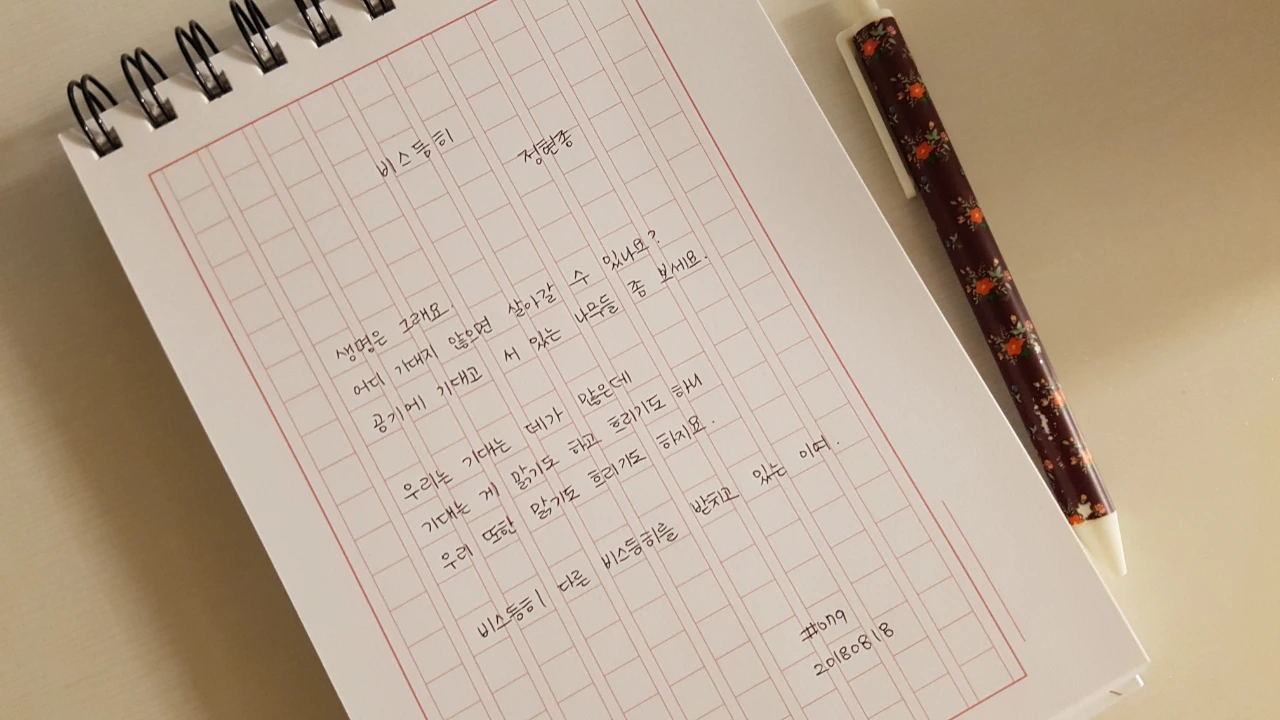 비스듬히 정현종
생명은 그래요.
어디 기대지 않으면 살아갈 수 있나요?
공기에 기대고 서 있는 나무들 좀 보세요.
우리는 기대는 데가 많은데
기대는 게 맑기도 하고 흐리기도 하니
우리 또한 맑기도 흐리기도 하지요.
비스듬히 다른 비스듬히를 받치고 있는 이여.
20180818